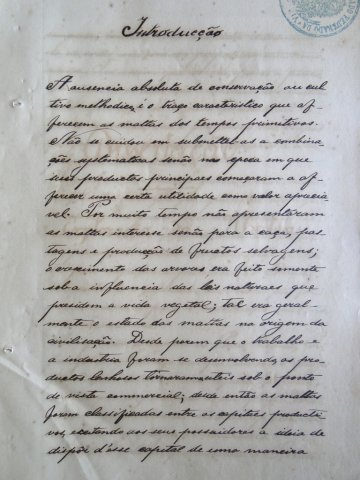 Introducção
A ausencia absoluta de conservação ou cul
tivo methodico, é o traço caracteristico que of
ferecem as mattas dos tempos primitivos.
Não se cuidou em submettel-as a combina
ções systematicas senão na epoca em que
seus productos principaes começaram a of
ferecer uma certa utilidade como valor aprecia
vel. Por muito tempo não apresentaram
as mattas interesse senão para a caça, pas
tagens e producção de fructos selvagens;
o crescimento das arvores era feito somente
sob a influencia das leis naturaes que
presidem a vida vegetal; tal era geral-
mente o estado das mattas na origem da
civilisação. Desde porem que o trabalho e
a industria foram se desenvolvendo, os pro-
ductos lenhosos tornaram uteis sob o ponto
de vista commercial; desde então as mattas
foram classificadas entre os capitaes producti-
vos, excitando aos seus possuidores a ideia de
dispôr d'esse capital de uma maneira